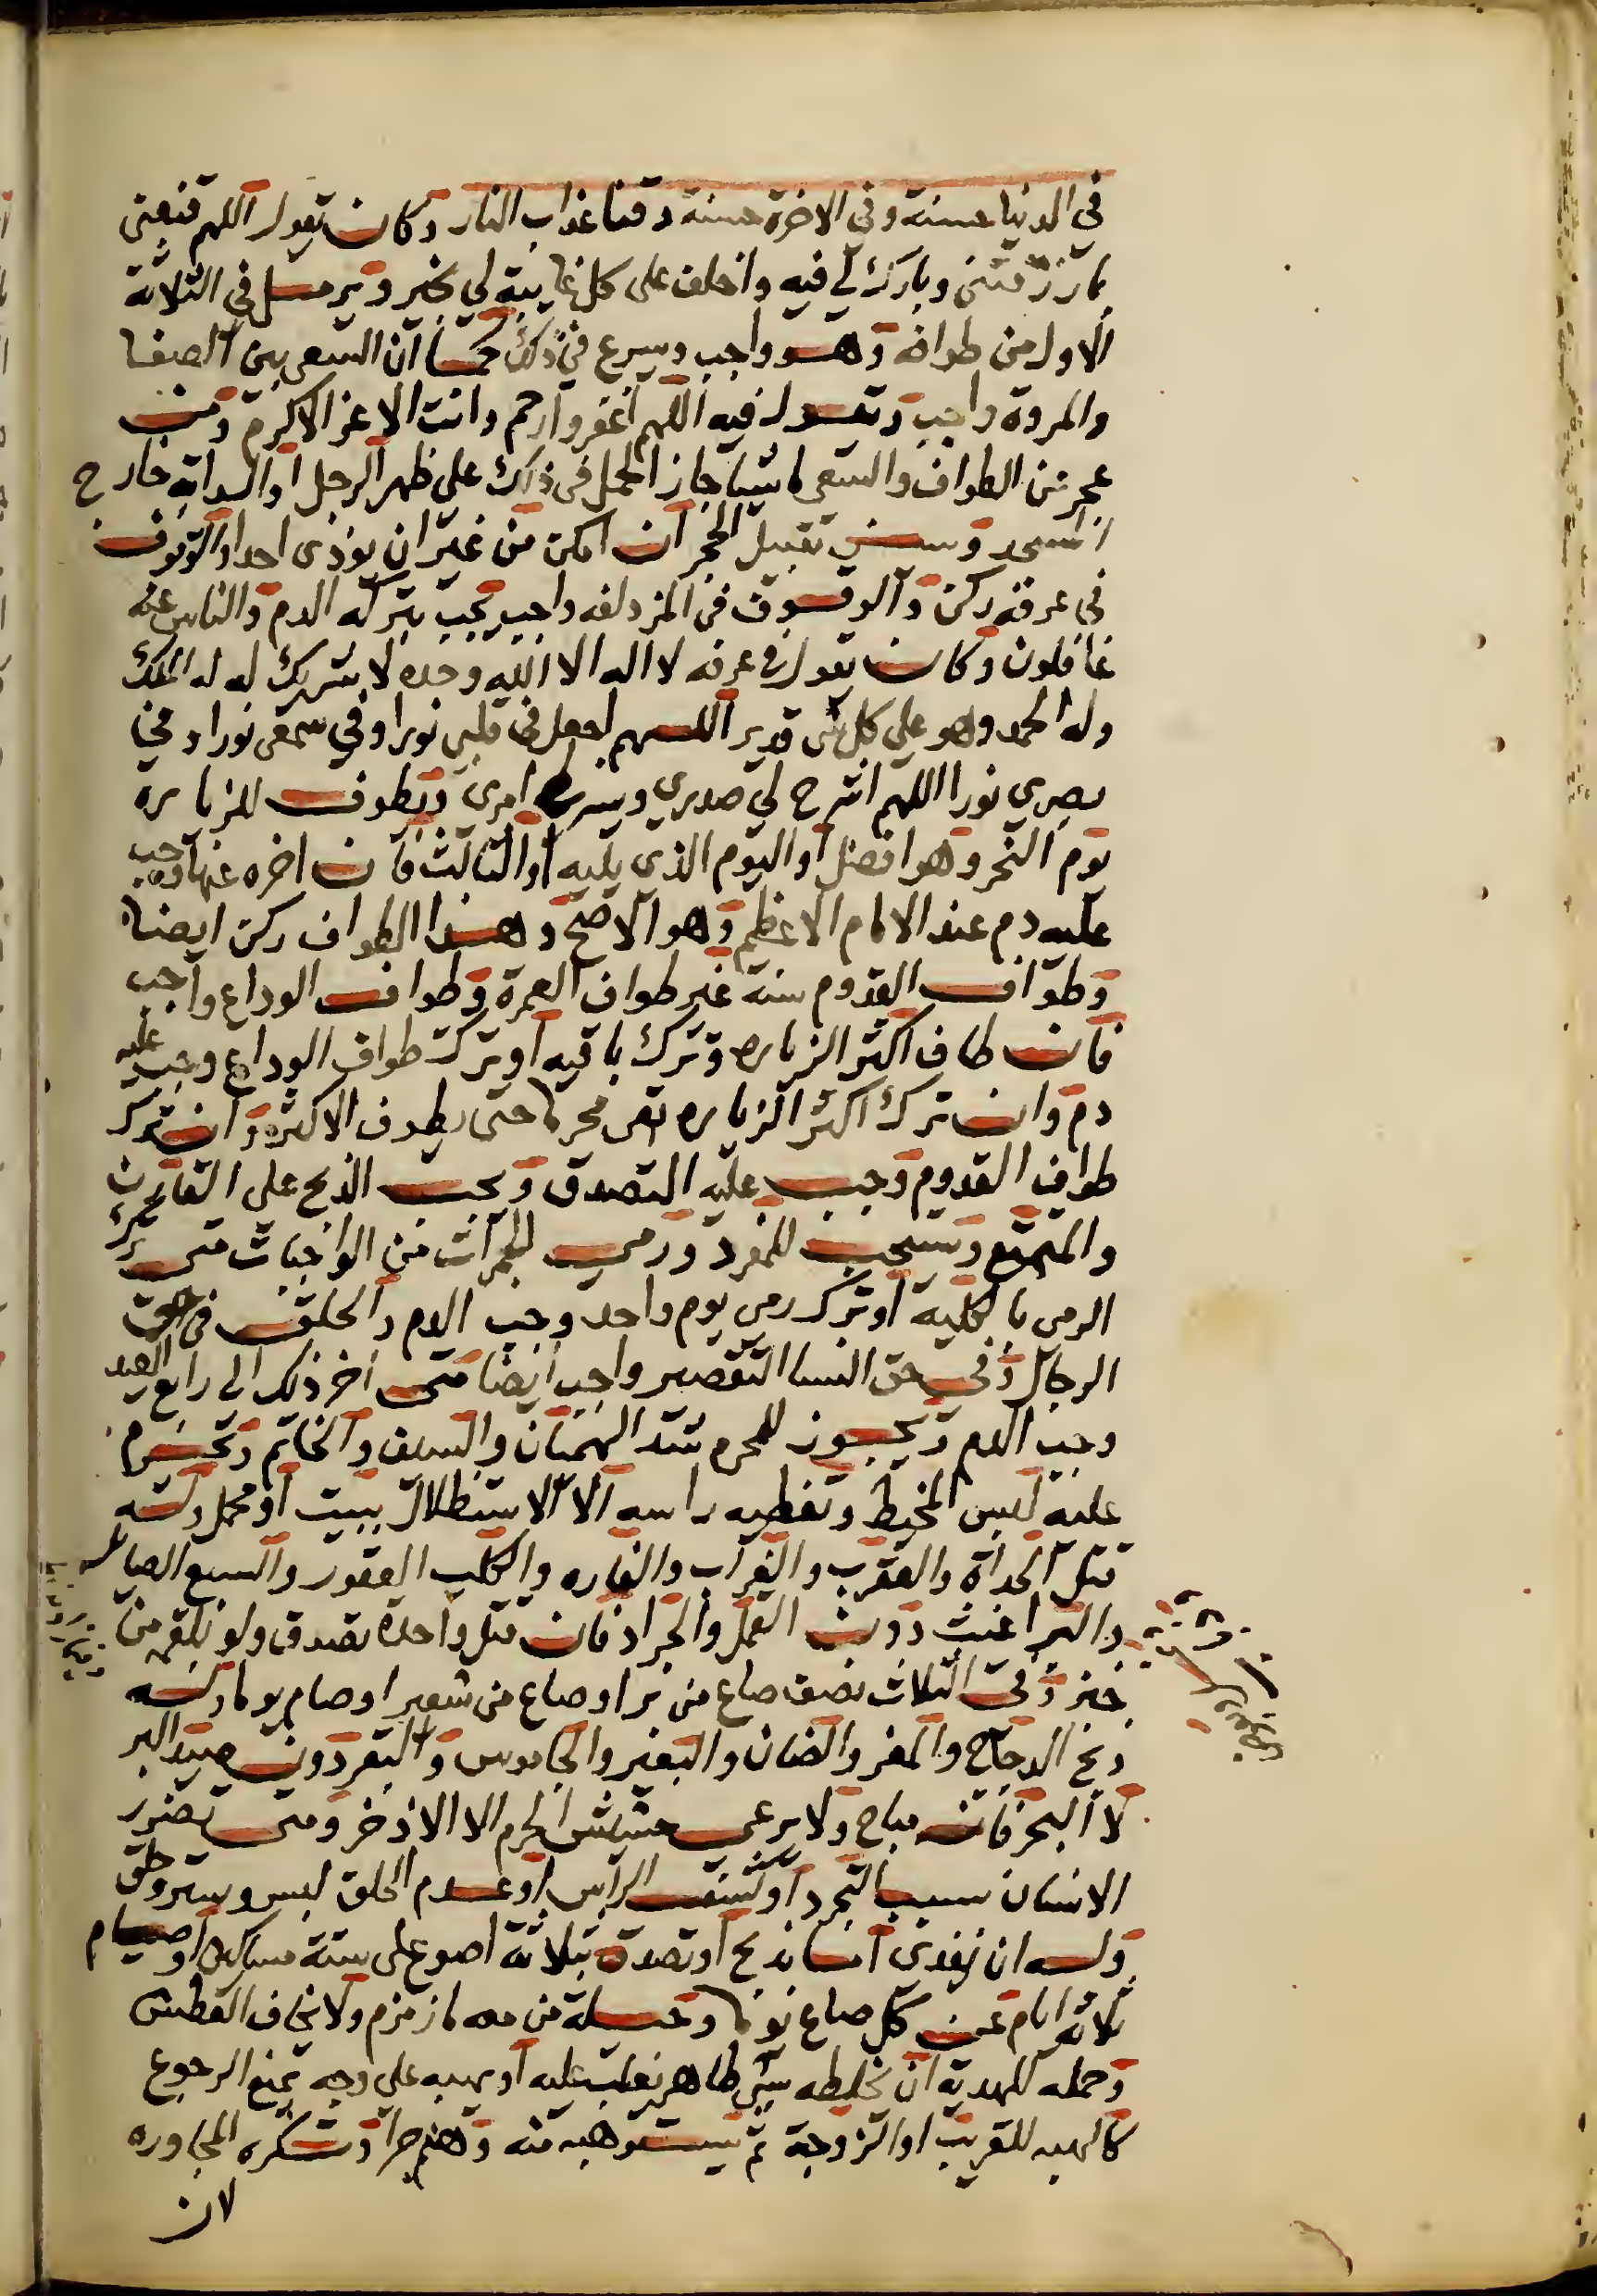 في الدنيا حسنة وفي الاخرة حسنة وقنا عذاب النار وكان يقول اللهم قنعني
بما رزقتني وبارك لي فيه واخلف على كل غايبة لي بخير ويرمل في الثلاثة
الاول من طوافه وهو واجب ويسرع في ذلك كما ان السعي بين الصفا
والمروة واجب وتقول فيه اللهم اغفر وارحم وانت الاعز الاكرم ومن
عجز عن الطواف والسعي ماشيا جاز الحمل في ذلك على ظهر الرجل او الدابة خارج
المسجد وسن تقبيل الحجر ان امكن من غير ان يوذي احدا والوقوف
في عرفة ركن والوقوف في المزدلفه واجب يجب بتركه الدم والناس عنه
غافلون وكان يقول في عرفه لا اله الا الله وحده لا شريك له له الملك
وله الحمد وهو علي كل شي قدير اللهم اجعل في قلبي نورا وفي سمعي نورا وفي
بصري نورا اللهم اشرح لي صدري ويسر لي امري ويطوف للزياره
يوم النحر وهو افضل او اليوم الذي يليه او الثالث فان اخره عنها وجب
عليه دم عند الامام الاعظم وهو الاصح وهذا الطواف ركن ايضا
وطواف القدوم سنة غير طواف العمرة وطواف الوداع واجب
فان طاف اكثر الزياره وترك باقيه او ترك طواف الوداع وجب عليه
دم وان ترك اكثر الزياره بقى محرما حتى يطوف الاكثر وان ترك
طواف القدوم وجب عليه التصدق ويجب الذبح على القارن
والمتمتع ويستحب للمفرد ورمي الجمرات من الواجبات متى ترك
الرمي بالكلية او ترك رمي يوم واحد وجب الدم والحلق في حق
الرجال وفي حق النسا التقصير واجب ايضا متى اخر ذلك الى رابع العيد
وجب الدم ويجوز للمحرم شد الهميان والسيف والخاتم ويحرم
عليه لبس المخيط وتغطيه راسه الا الاستظلال ببيت او محمل وله
قتل الحداة والعقرب والغراب والفاره والكلب العقور والسبع الصايل
والبراغيث دون القمل والجراد فان قتل واحدة تصدق ولو بلقمة من
خبز وفي الثلاث نصف صاع من بر او صاع من شعير او صام يوما وله
ذبح الدجاج والمعز والضان والبعير والجاموس والبقر دون صيد البر
لا البحر فانه مباح ولا يرعي حشيش الحرم الا الاذخر ومتى تضرر
الانسان بسبب التجرد او كشف الراس او عدم الحلق لبس وستر وحلق
وله ان يفدي اما بذبح او تصدق بثلاثة اصوع على ستة مساكين او صيام
ثلاثة ايام عن كل صاع يوما وحيلة من معه ما زمزم ولا يخاف العطش
وحمله للهدية ان يخلطه بشي طاهر يغلب عليه او يهبه علي وجه يمنع الرجوع
كالهبه للقريب او الزوجة ثم يستوهبه منه وهلم جرا وتكره المجاوره
لان